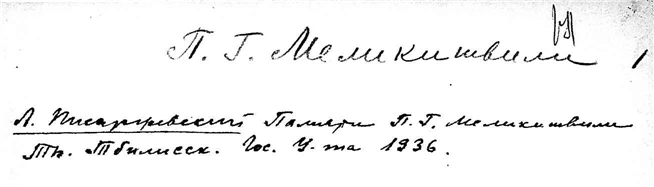 П. Г. Меликишвили
Л. Писаржевский Памяти П. Г. Меликишвили
Тр. Тбилисск. Гос. У-та 1936.